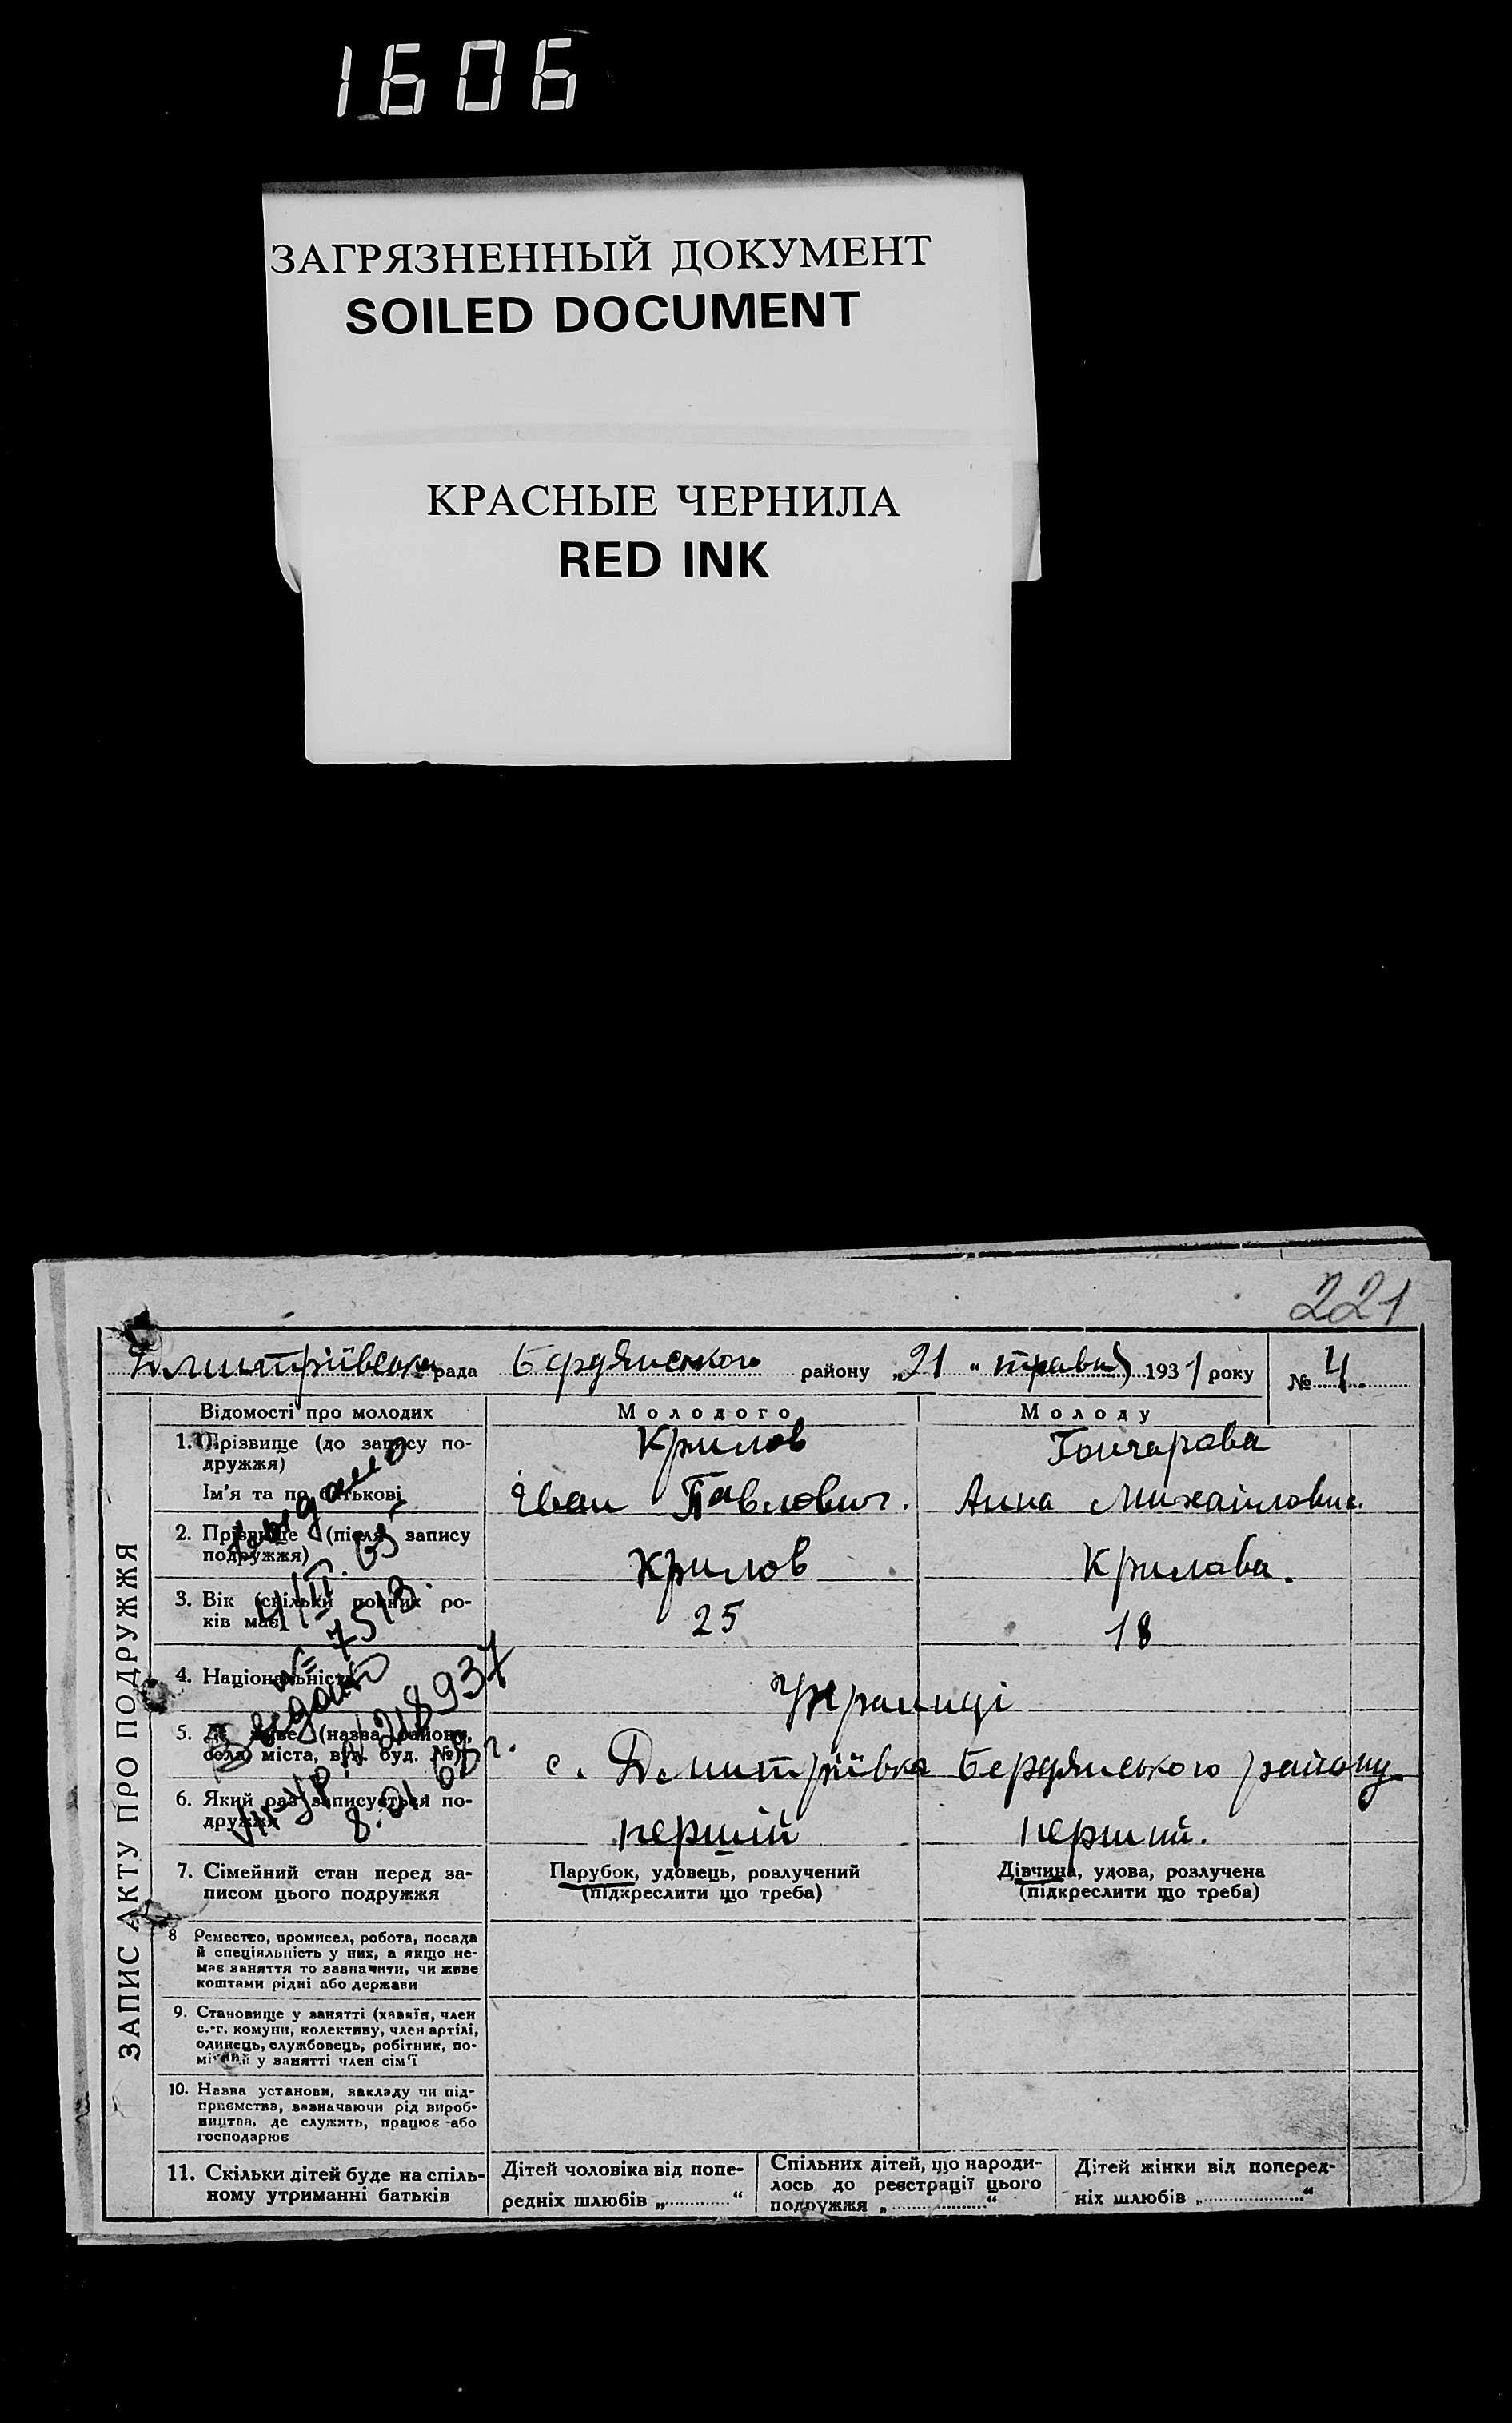 1606
ЗАГРЯЗНЕННЫЙ ДОКУМЕНТ
SOILED DOCUMENT
КРАСНЫЕ ЧЕРНИЛА
RED INK
221
Дмитріївська рада Бердянського району „21“ травня 1931 року № 4.
ЗАПИС АКТУ ПРО ПОДРУЖЖЯ
Відомості про молодих
Молодого
Молоду
1. Прізвище (до запису по-
дружжя)
Ім'я та по батькові
Крилов
Іван Павлович.
Гончарова
Анна Михайловна.
2. Прізвище (після запису
подружжя)
Крилов
Крилова.
3. Вік (скільки повних ро-
ків має)
25
18
4. Національність
Українці
5. Де живе (назва району,
села, міста, вул. буд. №)
с. Дмитріївка Бердянського району
6. Який раз записується по-
дружжя
першій
перший.
7. Сімейний стан перед за-
писом цього подружжя
Парубок, удовець, розлучений
(підкреслити що треба)
Дівчина, удова, розлучена
(підкреслити що треба)
8 Ремество, промисел, робота, посада
й спеціяльність у них, а якщо не-
має заняття то зазначити, чи живе
коштами рідні або держави
9. Становище у занятті (хазяїн, член
с.-г. комуни, колективу, член артілі,
одинець, службовець, робітник, по-
мічний у занятті член сім'ї
10. Назва установи, закладу чи під-
приємства, зазначаючи рід вироб-
ництва, де служить, працює або
господарює
11. Скільки дітей буде на спіль-
ному утриманні батьків
Дітей чоловіка від попе-
редніх шлюбів „ “
Спільних дітей, що народи-
лось до реєстрації цього
подружжя „ “
Дітей жінки від поперед-
ніх шлюбів „ “
Выдано
№ 7513.
Видано
N 218937